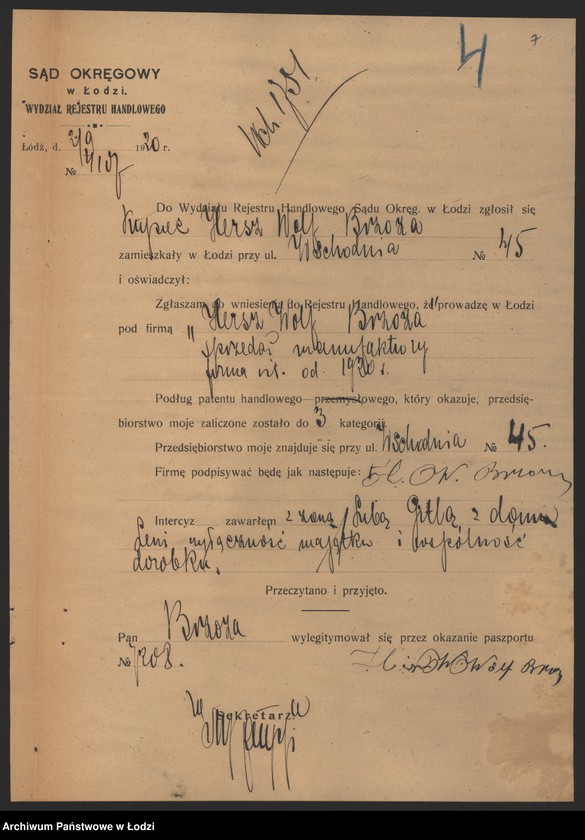 4
7
SĄD OKRĘGOWY
w Łodzi.
WYDZIAŁ REJESTRU HANDLOWEGO
Łódź, d. 1920 r.
№
Do Wydziału Rejestru Handlowego Sądu Okręg. w Łodzi zgłosił się
Kupiec Hersz Wolf Brzoza
zamieszkały w Łodzi przy ul. Wschodnia № 45
i oświadczył:
Zgłaszam do wniesienia do Rejestru Handlowego, że prowadzę w Łodzi
pod firmą „Hersz Wolf Brzoza"
sprzedaż manufaktury
firma od 1920 r.
Podług patentu handlowego—przemysłowego, który okazuje, przedsię-
biorstwo moje zaliczone zostało do 3 kategorji.
Przedsiębiorstwo moje znajduje się przy ul. Wschodnia № 45.
Firmę podpisywać będę jak następuje: H. W. Brzoza
Intercyz zawarłem z żoną Gitlą z domu
wyłączność majątku i wspólność
dorobku.
Przeczytano i przyjęto.
Pan Brzoza wylegitymował się przez okazanie paszportu
№ 7208.
za Sekretarza
Archiwum Państwowe w Łodzi